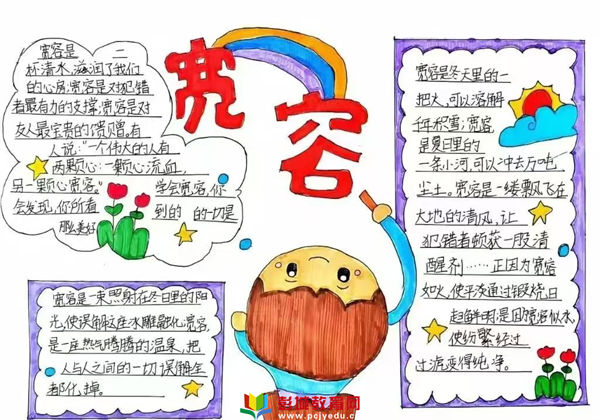 宽容
宽容是一
杯清水,滋润了我们
的心房;宽容是对犯错
者最有力的支撑;宽容是对
友人最宝贵的馈赠。有
人说:"一个伟大的人有
两颗心:一颗心流血,
另一颗心宽容。" 学会宽容,你
会发现,你所看到的 的一切是
那么美好
宽容是一束照射在冬日里的阳
光,使误解这座冰雕融化宽容,
是一座热气腾腾的温泉,把
人与人之间的一切误解全
都化掉。
宽容是冬天里的一
把火,可以溶解
千年积雪;宽容
是夏日里的
一条小河,可以冲去万吨
尘土。宽容是一缕飘飞在
大地的清风,让
犯错者顿获一股清
醒剂……正因为宽容
如火,使平淡通过锻烧,日
趋鲜明;是因宽容似水,
使纷繁经过
过滤变得纯净。
彭城教育网
www.pcjyedu.cn